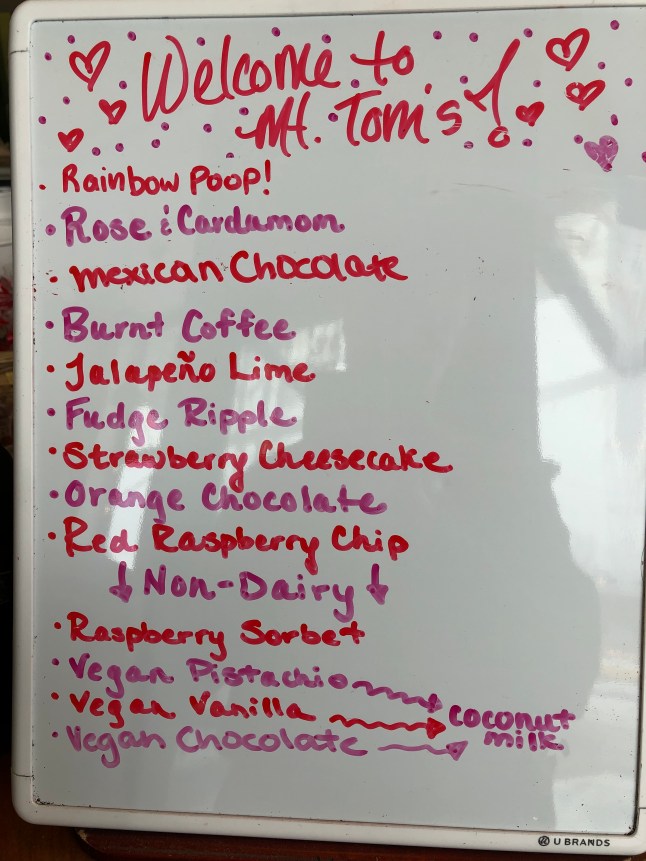 Welcome to
Mt. Tom's!
· Rainbow Poop!
· Rose & Cardamom
· Mexican Chocolate
· Burnt Coffee
· Jalapeño Lime
· Fudge Ripple
· Strawberry Cheesecake
· Orange Chocolate
· Red Raspberry Chip
↓ Non-Dairy ↓
· Raspberry Sorbet
· Vegan Pistachio →
· Vegan Vanilla → coconut
milk
· Vegan Chocolate →
U BRANDS